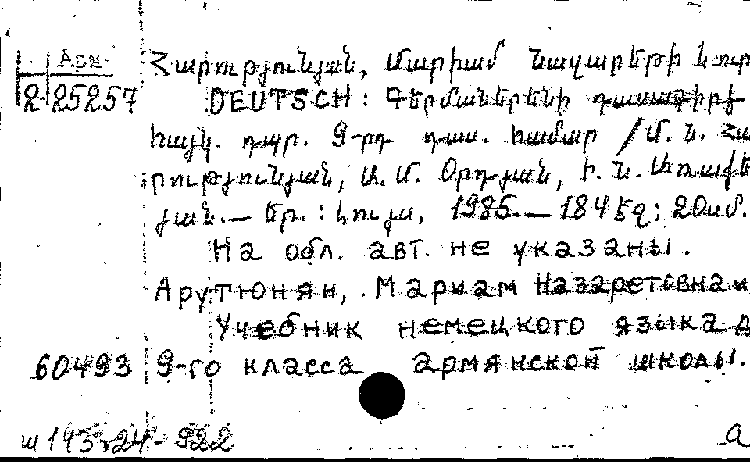 Арм. Հարությունյան, Մարիամ Նազարեթի և ուր
2 25257 DEUTSCH : Գերմաներենի դասագիրք
հայկ. դպր. 9-րդ դաս. համար / Մ. Ն. Հա
րությունյան, Ա. Մ. Օրդյան, Ի. Ն. Առաքե
լյան. — Եր. : Լույս, 1985. — 184 էջ ; 20 սմ.
На обл. авт. не указаны.
Арутюнян, Мариам Назаретовна и
Учебник немецкого языка д
60493 9-го класса армянской школы.
922
а